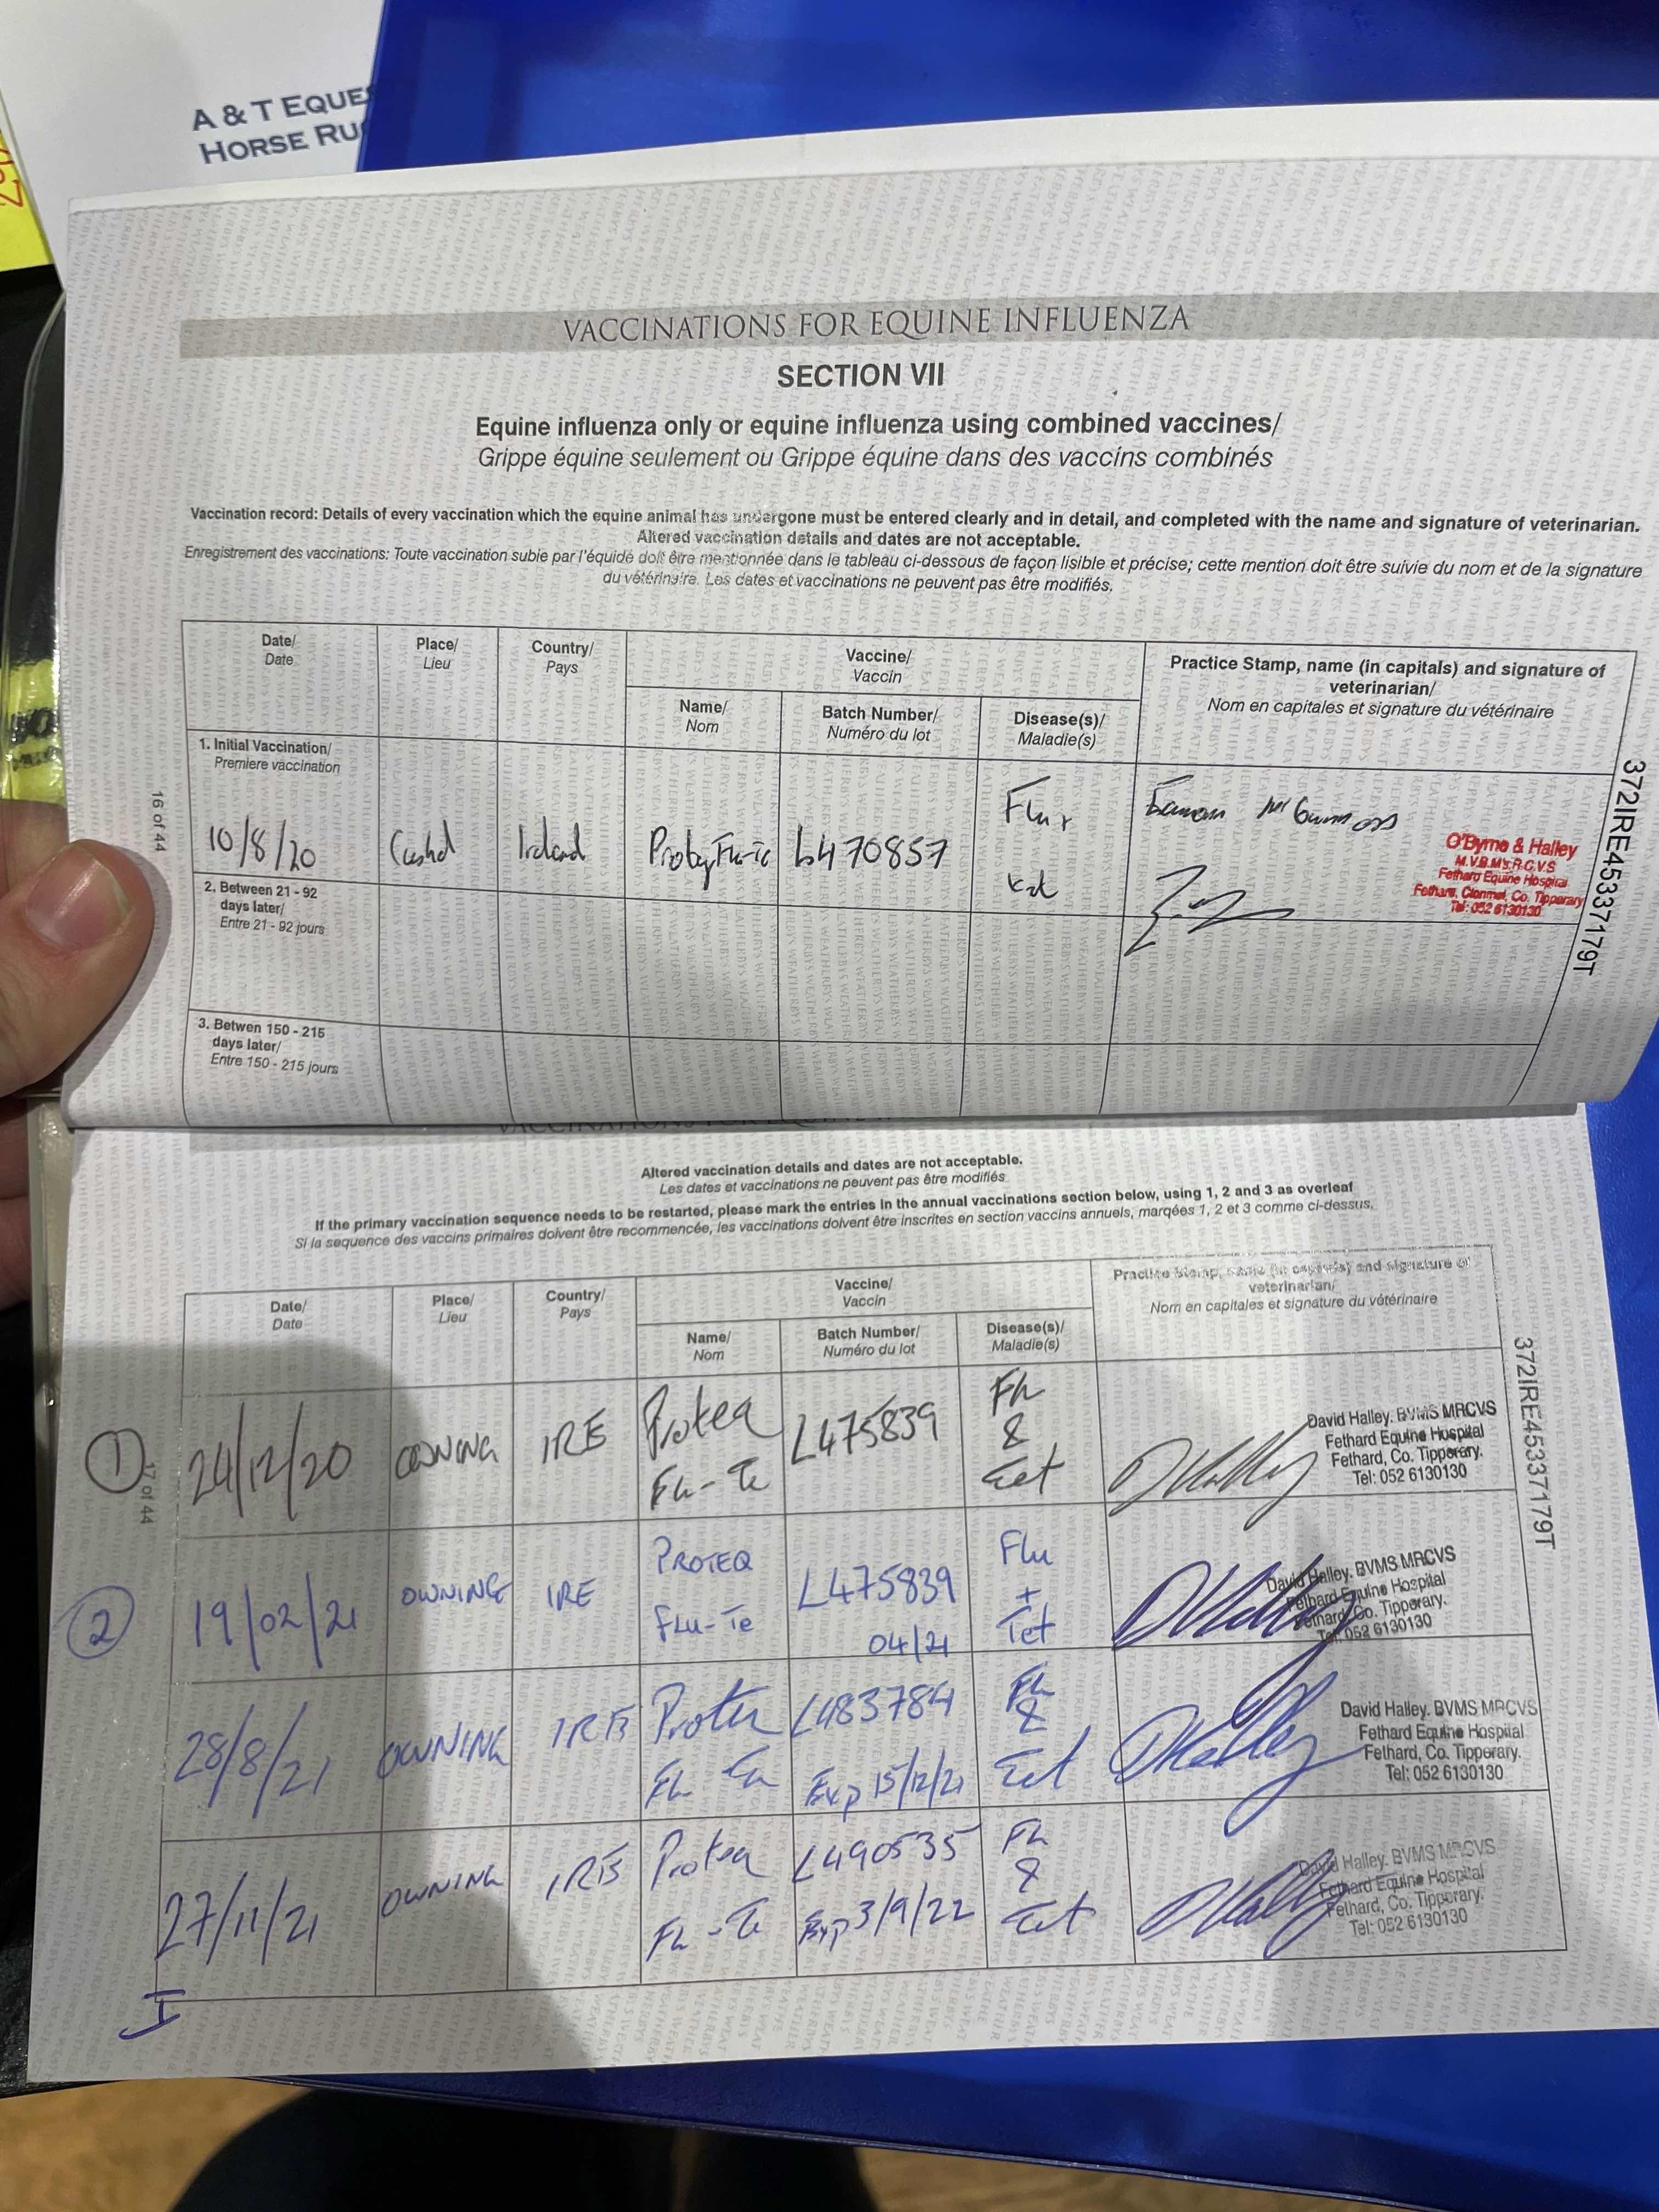 A & T EQUES
HORSE RU
VACCINATIONS FOR EQUINE INFLUENZA
SECTION VII
Equine influenza only or equine influenza using combined vaccines/
Grippe équine seulement ou Grippe équine dans des vaccins combinés
Vaccination record: Details of every vaccination which the equine animal has undergone must be entered clearly and in detail, and completed with the name and signature of veterinarian.
Altered vaccination details and dates are not acceptable.
Enregistrement des vaccinations: Toute vaccination subie par l'équidé doit être mentionnée dans le tableau ci-dessous de façon lisible et précise; cette mention doit être suivie du nom et de la signature
du vétérinaire. Les dates et vaccinations ne peuvent pas être modifiés.
Date/
Date
Place/
Lieu
Country/
Pays
Vaccine/
Vaccin
Name/
Nom
Batch Number/
Numéro du lot
Disease(s)/
Maladie(s)
Practice Stamp, name (in capitals) and signature of
veterinarian/
Nom en capitales et signature du vétérinaire
1. Initial Vaccination/
Premiere vaccination
10/8/20
Cashel
Ireland
L470857
Flu +
O'Byrne & Halley
M.V.B.M's R.C.V.S
Fethard Equine Hospital
Fethard, Clonmel, Co. Tipperary
Tel: 052 6130130
2. Between 21 - 92
days later/
Entre 21 - 92 jours
3. Betwen 150 - 215
days later/
Entre 150 - 215 jours
16 of 44
372IRE45337179T
Altered vaccination details and dates are not acceptable.
Les dates et vaccinations ne peuvent pas être modifiés
If the primary vaccination sequence needs to be restarted, please mark the entries in the annual vaccinations section below, using 1, 2 and 3 as overleaf
Si la sequence des vaccins primaires doivent être recommencée, les vaccinations doivent être inscrites en section vaccins annuels, marqées 1, 2 et 3 comme ci-dessus,
Date/
Date
Place/
Lieu
Country/
Pays
Vaccine/
Vaccin
Name/
Nom
Batch Number/
Numéro du lot
Disease(s)/
Maladie(s)
Practice Stamp, name (in capitals) and signature of
veterinarian/
Nom en capitales et signature du vétérinaire
1
24/12/20
OWNING
IRE
Proteq
Flu-Te
L475839
Flu
&
Tet
David Halley. BVMS MRCVS
Fethard Equine Hospital
Fethard, Co. Tipperary.
Tel: 052 6130130
2
19/02/21
OWNING
IRE
PROTEQ
FLU-Te
L475839
04/21
Flu
+
Tet
David Halley. BVMS MRCVS
Fethard Equine Hospital
Fethard, Co. Tipperary.
Tel: 052 6130130
28/8/21
OWNING
IRE
Proteq
Flu Te
L483784
Exp 15/12/21
Flu
&
Tet
David Halley. BVMS MRCVS
Fethard Equine Hospital
Fethard, Co. Tipperary.
Tel: 052 6130130
27/11/21
OWNING
IRE
Proteq
Flu-Te
L490535
Exp 3/9/22
Flu
&
Tet
David Halley. BVMS MRCVS
Fethard Equine Hospital
Fethard, Co. Tipperary.
Tel: 052 6130130
17 of 44
372IRE45337179T